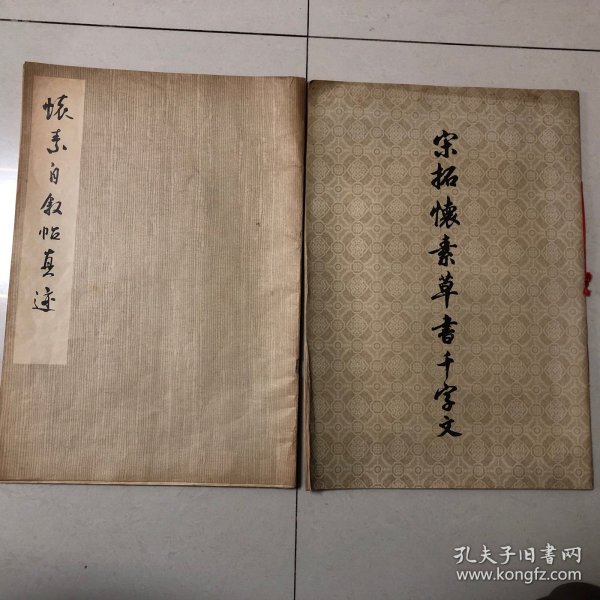 懐素自叙帖真迹
宋拓懷素草書千字文
孔夫子旧書网
www.kongfz.com